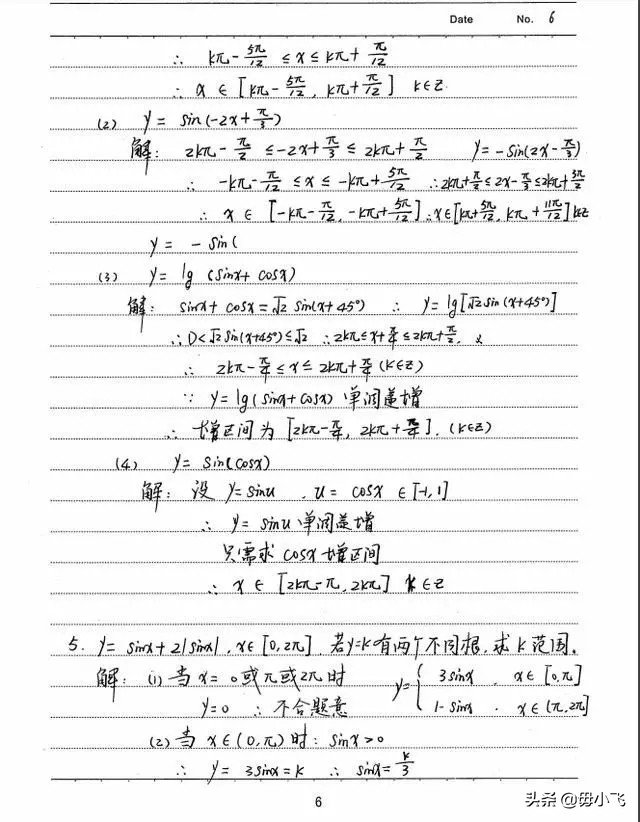 Date No. 6
∴ kπ - 5π/12 ≤ x ≤ kπ + π/12
∴ x ∈ [kπ - 5π/12, kπ + π/12] k∈Z
(2) y = sin(-2x + π/3)
解: 2kπ - π/2 ≤ -2x + π/3 ≤ 2kπ + π/2 y = -sin(2x - π/3)
∴ -kπ - π/12 ≤ x ≤ -kπ + 5π/12 ∴ 2kπ + π/2 ≤ 2x - π/3 ≤ 2kπ + 3π/2
∴ x ∈ [-kπ - π/12, -kπ + 5π/12] ∴ x∈[kπ + 5π/12, kπ + 11π/12] k∈Z
y = - sin(
(3) y = lg (sinx + cosx)
解: sinx + cosx = √2 sin(x+45°) ∴ y = lg[√2 sin(x+45°)]
∴ 0 < √2 sin(x+45°) ≤ √2 ∴ 2kπ ≤ x + π/4 ≤ 2kπ + π/2.
∴ 2kπ - π/4 ≤ x ≤ 2kπ + π/4 (k∈Z)
∵ y = lg(sinx + cosx) 单调递增
∴ 增区间为 [2kπ - π/4, 2kπ + π/4]. (k∈Z)
(4) y = sin(cosx)
解: 设 y = sinu . u = cosx ∈ [-1, 1]
∴ y = sinu 单调递增
只需求 cosx 增区间
∴ x ∈ [2kπ - π, 2kπ] k∈Z
5. y = sinx + 2|sinx|, x∈[0, 2π] 若y=k有两个不同根, 求k范围.
解: (1) 当 x = 0 或 π 或 2π 时 y = { 3sinx . x∈[0, π]
y = 0 ∴ 不合题意 1-sinx . x∈(π, 2π]
(2) 当 x∈(0, π) 时: sinx > 0
∴ y = 3sinx = k ∴ sinx = k/3
6
头条 @毋小飞